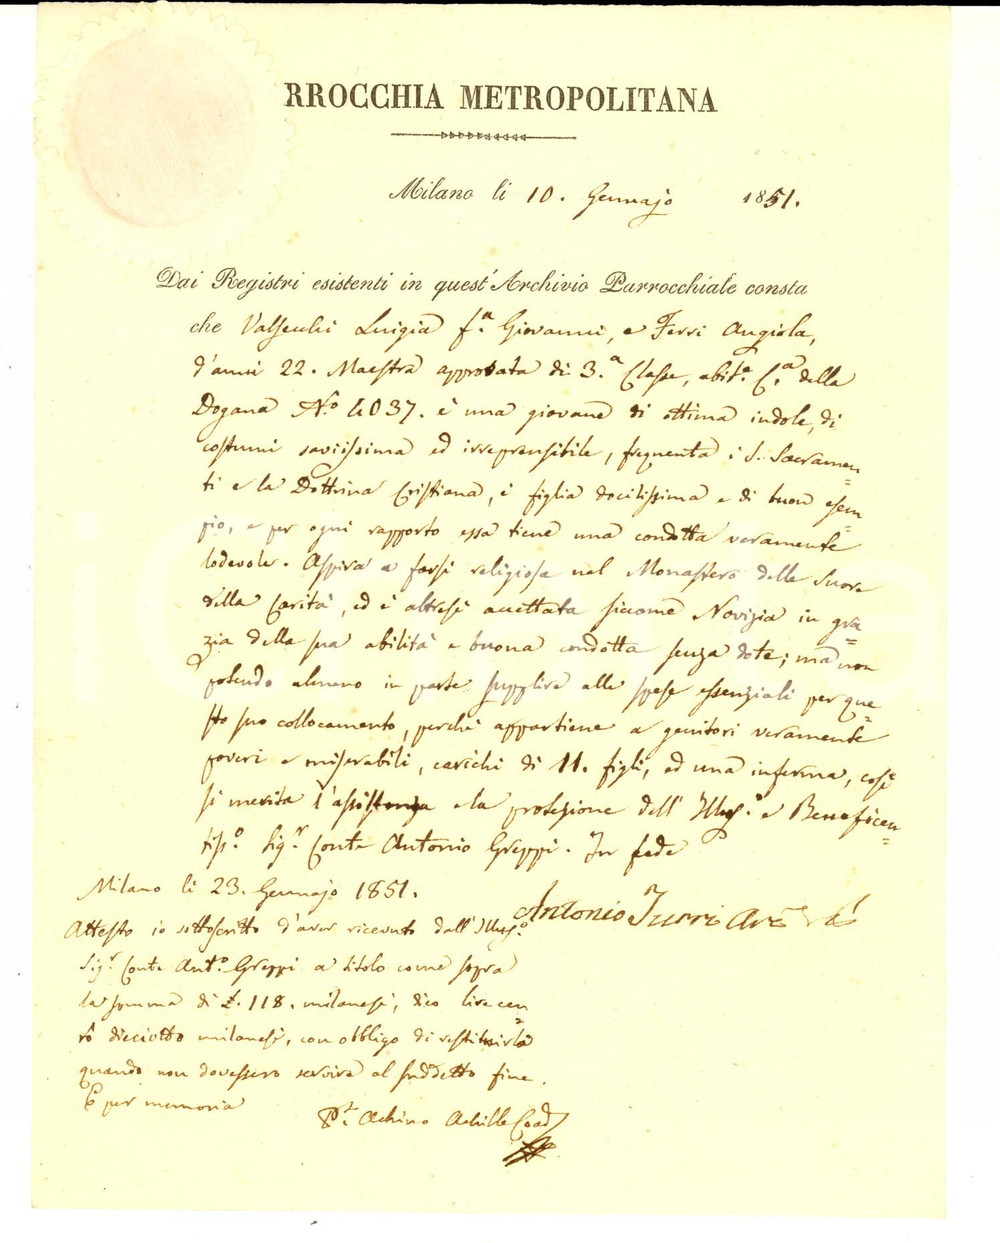 RROCCHIA METROPOLITANA
Milano li 10. Gennajo 1851.
Dai Registri esistenti in quest'Archivio Parrocchiale consta
che Valsecchi Luigia f.a Giovanni, e Ferri Angiola,
d'anni 22. Maestra approvata di 3.a Classe, abit.e C.a della
Dogana N.o 4037. è una giovane di ottima indole, di
costumi saviissima ed irreprensibile, frequenta i S. Sacramen=
ti e la Dottrina Cristiana, è figlia docilissima e di buon esem=
pio, e per ogni rapporto essa tiene una condotta veramente
lodevole. Aspira a farsi religiosa nel Monastero delle Suore
della Carità, ed è altresì accettata siccome Novizia in gra=
zia della sua abilità e buona condotta senza dote; ma non
potendo almeno in parte supplire alle spese essenziali per que=
sto suo collocamento, perchè appartiene a genitori veramente
poveri e miserabili, carichi di 11. figli, ed una inferma, così
si merita l'assistenza e la protezione dell'Illus.o e Beneficen=
tiss.o Sig.r Conte Antonio Greppi. In fede
Antonio Turri
Milano li 23. Gennajo 1851.
Attesto io sottoscritto d'aver ricevuto dall'Illus.o
Sig.r Conte Ant.o Greppi a titolo come sopra
la somma di £. 118. milanesi, dico lire cen=
to dieciotto milanesi, con obbligo di restituirla
quando non dovessero servire al suddetto fine.
E per memoria
P.t Achino Achille Coad.